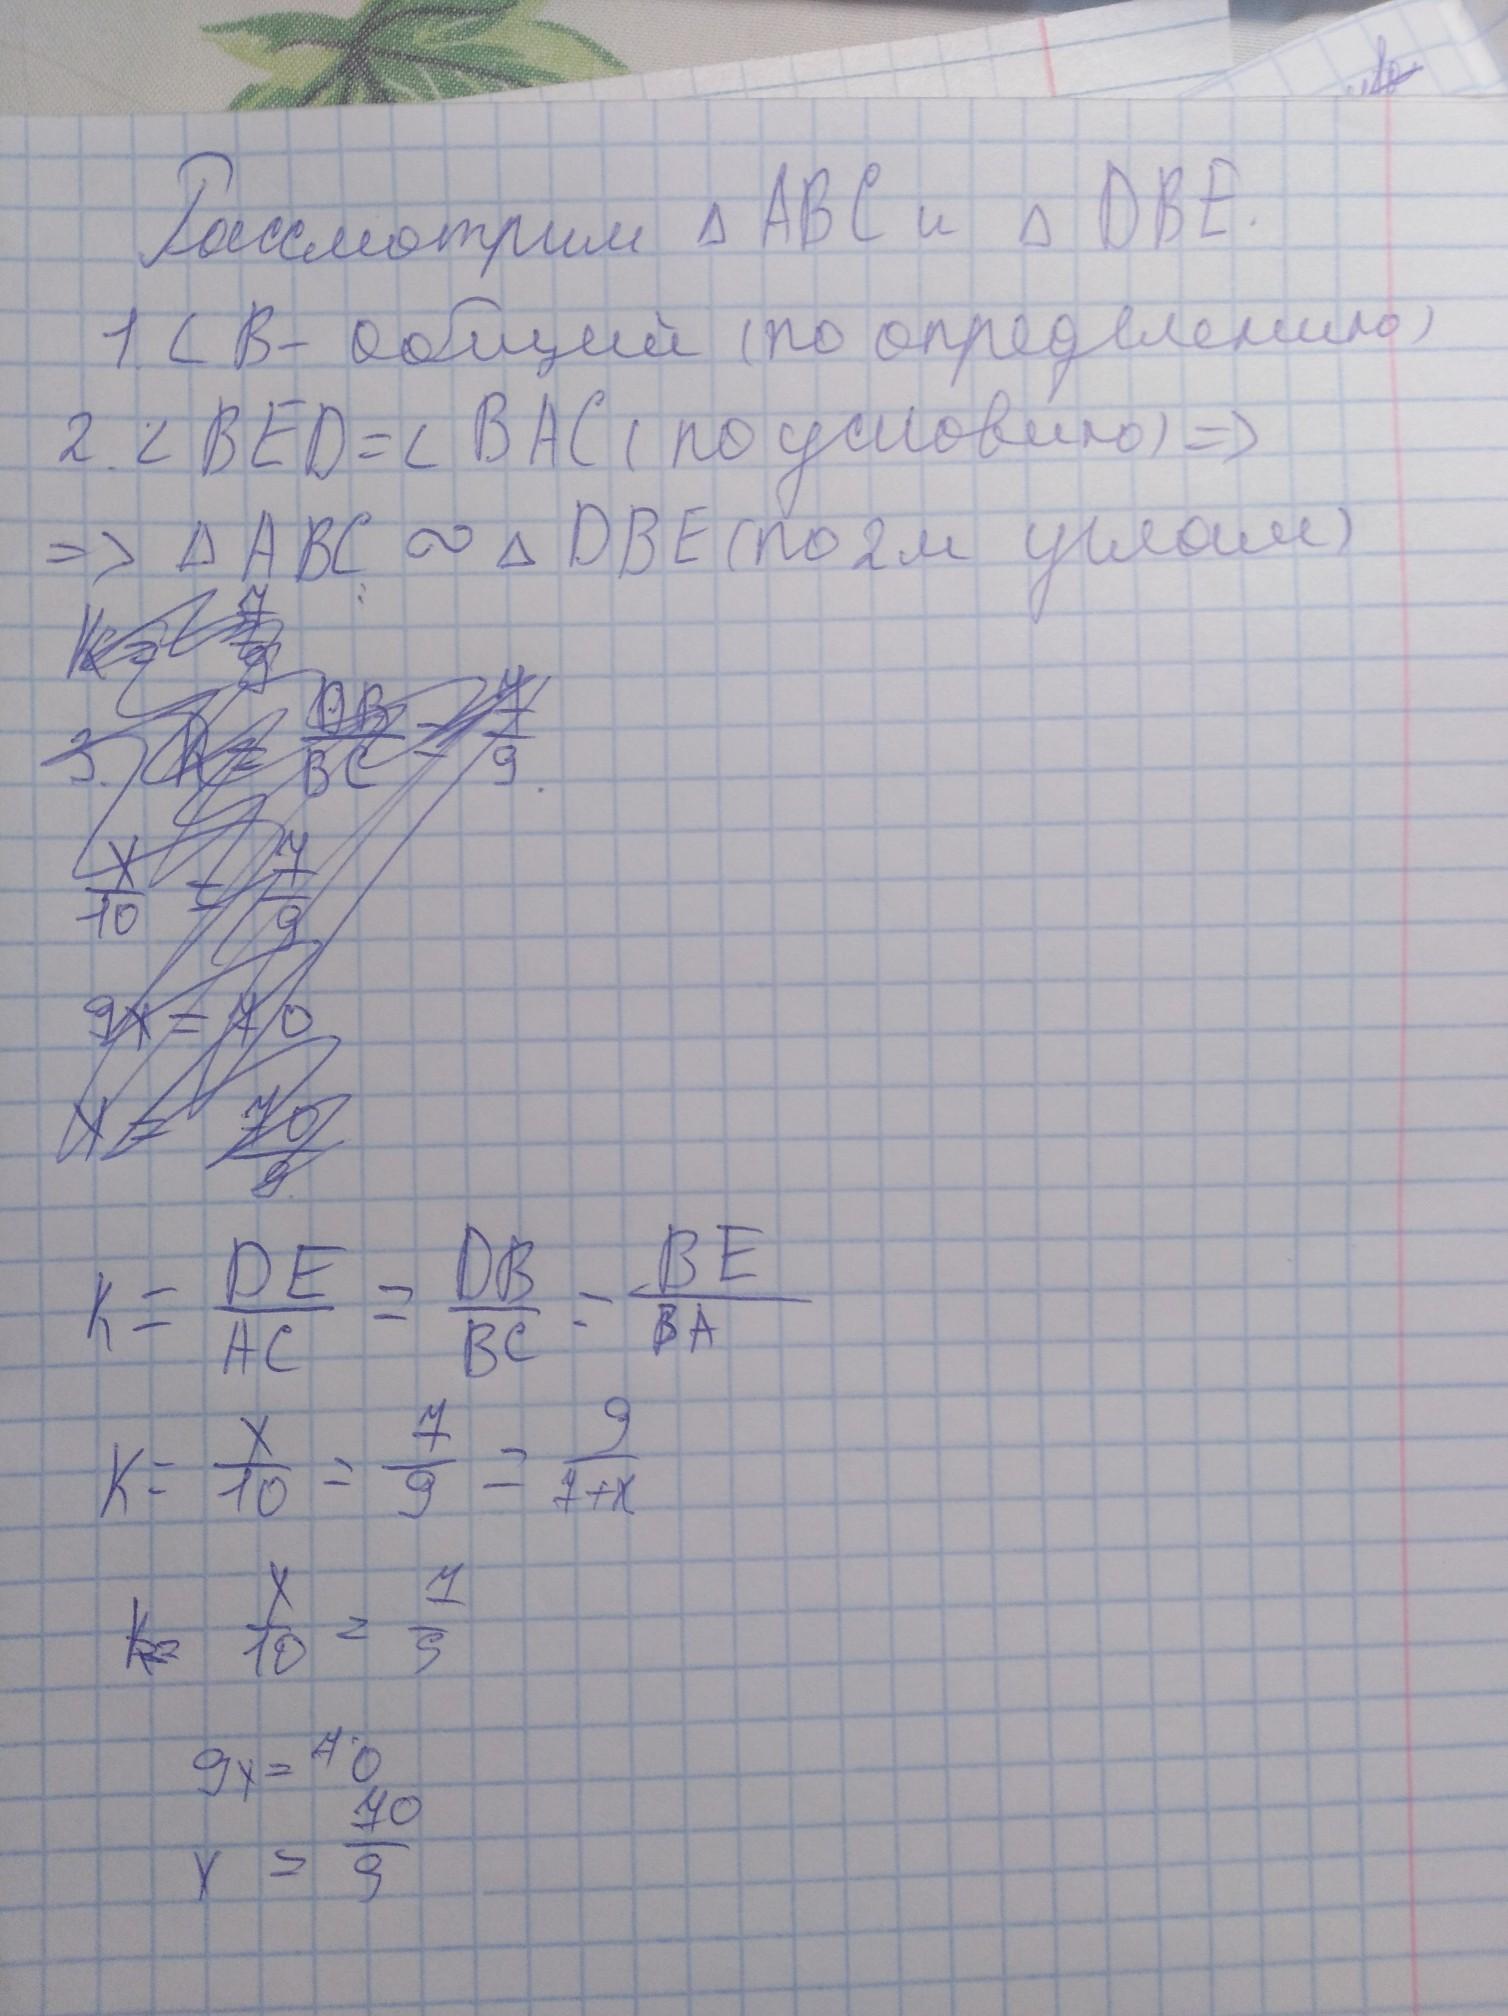 Рассмотрим △ ABC и △ DBE.
1. ∠ B- общий (по определению)
2. ∠ BED = ∠ BAC ( по условию) =>
=> △ ABC ∾ △ DBE (по 2м углам)
K = 7/9
3. K = DB/BC = 7/9.
x/10 = 7/9
9x = 70
x = 70/9
K = DE/AC = DB/BC = BE/BA
K = x/10 = 7/9 = 9/7+x
K= x/10 = 7/9
9x = 70
x = 70/9